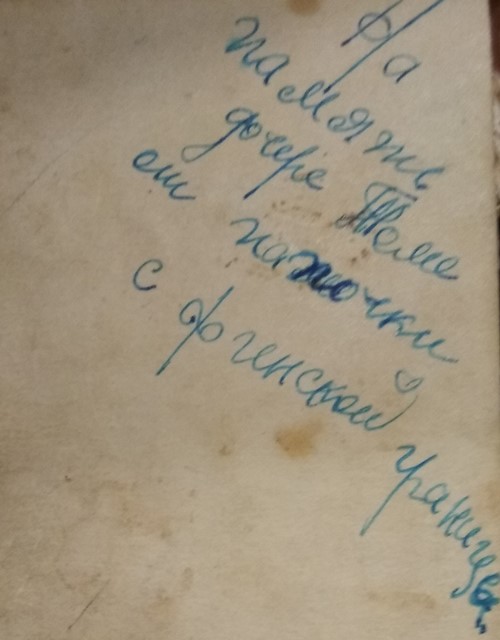 На
память
дочере Томе
от папочки
с фгенской границы